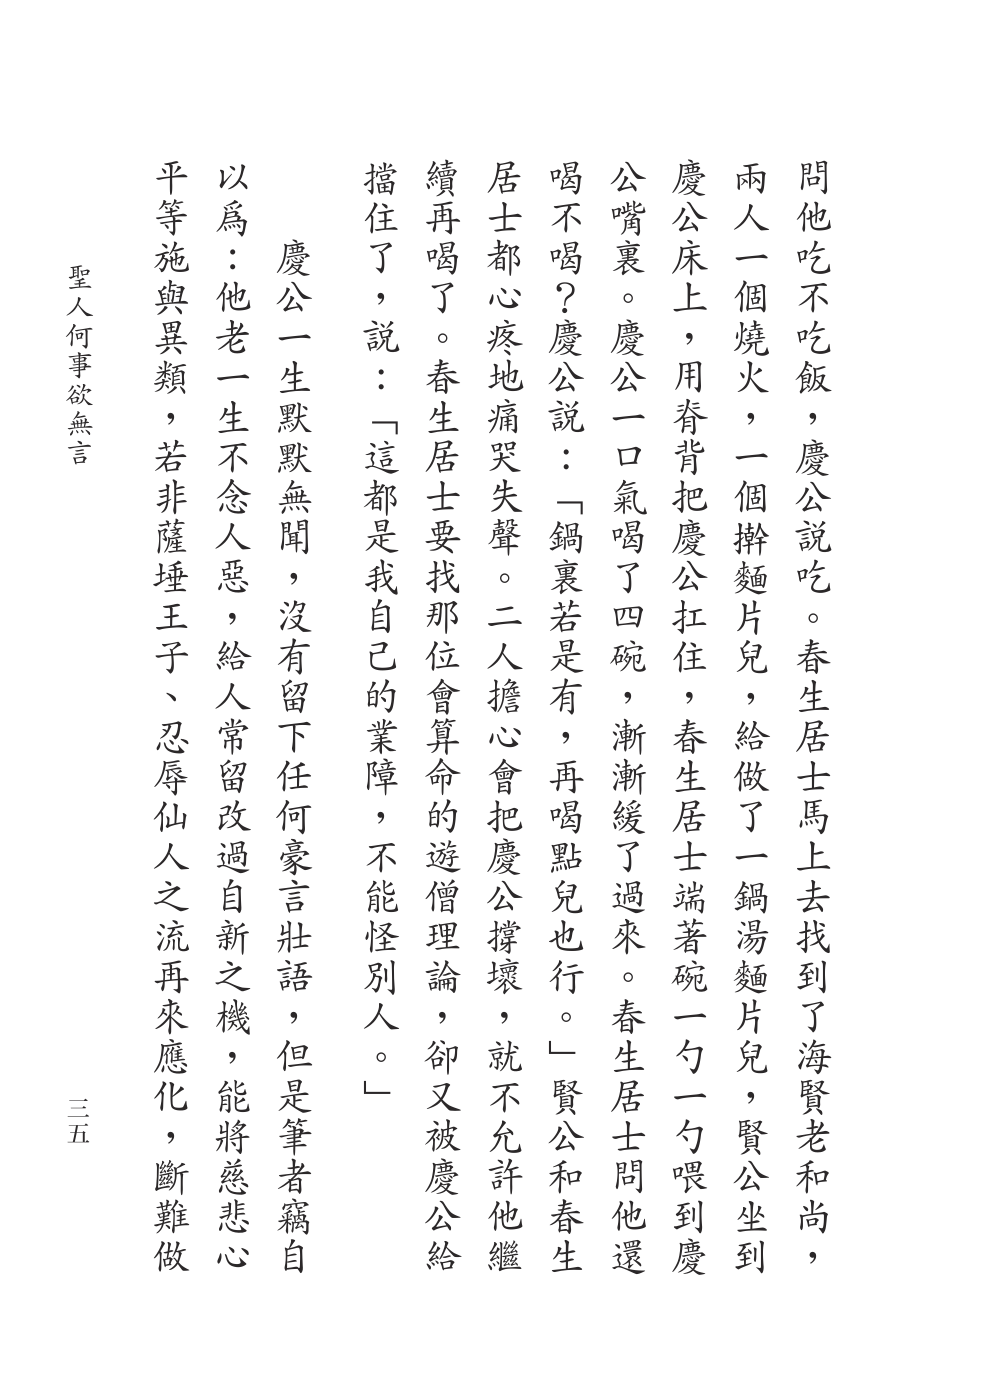 問他吃不吃飯，慶公説吃。春生居士馬上去找到了海賢老和尚，
兩人一個燒火，一個擀麵片兒，給做了一鍋湯麵片兒，賢公坐到
慶公床上，用脊背把慶公扛住，春生居士端著碗一勺一勺喂到慶
公嘴裏。慶公一口氣喝了四碗，漸漸緩了過來。春生居士問他還
喝不喝？慶公説：「鍋裏若是有，再喝點兒也行。」賢公和春生
居士都心疼地痛哭失聲。二人擔心會把慶公撐壞，就不允許他繼
續再喝了。春生居士要找那位會算命的遊僧理論，卻又被慶公給
擋住了，説：「這都是我自己的業障，不能怪別人。」
慶公一生默默無聞，沒有留下任何豪言壯語，但是筆者竊自
以爲：他老一生不念人惡，給人常留改過自新之機，能將慈悲心
平等施與異類，若非薩埵王子、忍辱仙人之流再來應化，斷難做
聖人何事欲無言
三五